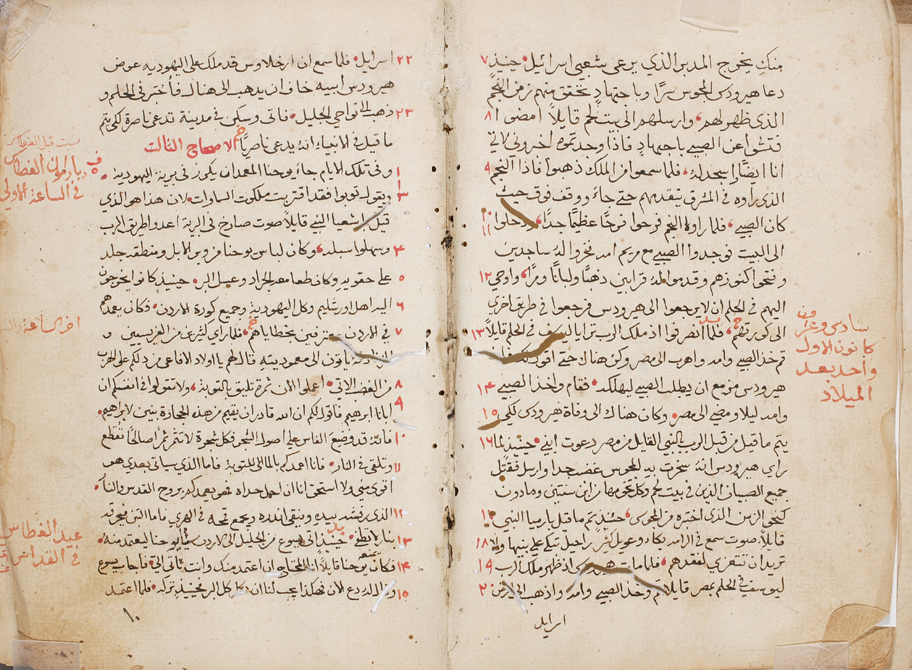 منك يخرج المدبر الذي يرعى شعبي اسرائيل حينيذ ٧
دعا هيرودس المجوس سرًا وباجتهاد تحقق منهم زمن النجم
الذي ظهر لهم وارسلهم الى بيت لحم قايلاً امضوا ٨
فتشوا عن الصبي باجتهاد فاذا وجدتموه اخبروني لاتي
انا ايضًا اسجد له فلما سمعوا من الملك ذهبوا فاذا النجم ٩
الذي راوه في المشرق يتقدمهم حتى جاء ووقف فوق حيث
كان الصبي فلما راوا النجم فرحوا فرحًا عظيمًا جدًا ودخلوا ١١
الى البيت فوجدوا الصبي مع مريم امه فخروا له ساجدين
وفتحوا كنوزهم وقدموا له قرابين ذهبًا ولبانًا ومرًا واوحي ١٢
اليهم في الحلم ان لا يرجعوا الى هيرودس فرجعوا في طريق اخرى
الى كورتهم فلما انصرفوا اذ ملاك الرب ترايا ليوسف في الحلم قايلاً ١٣
قم خذ الصبي وامه واهرب الى مصر وكن هناك حتى اقول لك فان
هيرودس مزمع ان يطلب الصبي ليهلكه فقام واخذ الصبي ١٤
وامه ليلا ومضى الى مصر وكان هناك الى وفاة هيرودس لكي ١٥
يتم ما قيل من قبل الرب بالنبي القايل من مصر دعوت ابني حينيذ لما ١٦
راى هيرودس انه سخرت به المجوس غضب جدا وارسل فقتل
جميع الصبيان الذين في بيت لحم وكل تخومها من ابن سنتين ومادون
كنحو الزمن الذي اختبره من المجوس حينيذ تم ماقيل بارميا النبي
قايلاً صوت سمع في الرامه بكاء وعويل كثير راحيل تبكي على بنيها ولا ١٨
تريد ان تتعزى لفقدهم فلما مات هيرودس اذ ظهر ملاك الرب ١٩
ليوسف في الحلم بمصر قايلا قم وخذ الصبي وامه واذهب الى ارض ٢٠
اسرايل
كانون الاول
واحد بعد
الميلاد
٢٢ اسرايل فلما سمع ان ارخلاوس قد ملك على اليهوديه عوض
هيرودس ابيه خاف ان يذهب الى هناك فأخبر في الحلم و
٢٣ ذهب الى نواحي الجليل فاتى وسكن في مدينة تدعى ناصرة لكي يتم
ما قيل في الانبياء انه يدعى ناصريًا الاصحاح الثالث
١ وفي تلك الايام جاء يوحنا المعمدان يكرز في برية اليهودية
ويقول توبوا فقد اقتربت ملكوت السماوات لان هذا هو الذي
قيل باشعيا النبي قايلاً صوت صارخ في البرية اعدوا طريق الرب
٤ وسهلوا سبله وكان لباس يوحنا من وبر الابل ومنطقه جلد
٥ على حقويه وكان طعامه الجراد وعسل البر حينيذ كانوا يخرجون
٦ اليه اهل اورشليم وكل اليهودية وجميع كورة الاردن فكان يعمدهم
٧ في الاردن معترفين بخطاياهم فلما راى كثير من الفريسيين و
ياتون الى معموديته قال لهم يا اولاد الافاعي من دلكم على الهرب
٨ من الغضب الاتي اعملوا الان ثمرة تليق بالتوبة ولا تقولوا في انفسكم ان
٩ ابانا ابرهيم فاقول لكم ان الله قادر ان يقيم من هذه الحجارة بنين لابرهيم
١٠ فانه قد وضع الفاس على اصول الشجر فكل شجرة لا تثمر ثمرًا صالحًا تقطع
١١ وتلقى في النار فانا اعمدكم بالماء للتوبة فاما الذي ياتي بعدي هو
اقوى مني ولا استحق انا ان احمل حذاه هو يعمدكم بروح القدس والنار
١٢ الذي رفشه بيده وينقي اندره ويجمع قمحه في الهري فاما التبن فيحرقه
١٣ بنار لا تطفى حينيذ اتى يسوع من الجليل الى الاردن الى يوحنا ليعتمد منه
١٤ فكان يوحنا قايلاً انا المحتاج ان اعتمد منك وانت تاتي الي فاجاب يسوع
١٥ وقال له دع الان فهكذا يجب لنا ان نكمل كل البر حينيذ تركه فلما اعتمد
١٠
بارمون الغطاس
في الساعة الاولى
عيد الغطاس
في القداس